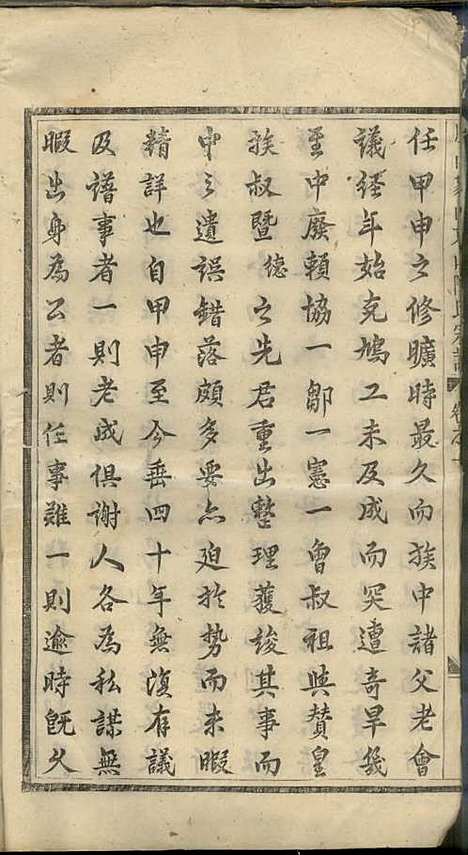 任甲申之修曠時最久而族中諸父老會
議經年始克鳩工未及成而突遭奇旱幾
至中廢賴協一鄒一憲一會叔祖與贊皇
族叔暨德之先君重出整理獲竣其事而
中之遺誤錯落頗多要亦迫於勢而未暇
精詳也自甲申至今垂四十年無復有議
及譜事者一則老成俱謝人各為私謀無
暇出身為公者則任事難一則逾時既久